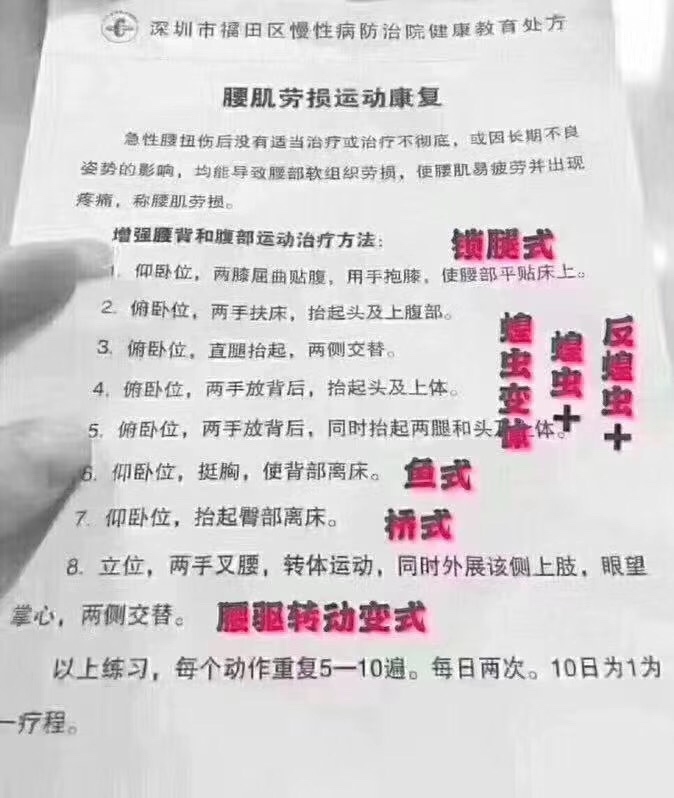 深圳市福田区慢性病防治院健康教育处方
腰肌劳损运动康复
急性腰扭伤后没有适当治疗或治疗不彻底，或因长期不良
姿势的影响，均能导致腰部软组织劳损，使腰肌易疲劳并出现
疼痛，称腰肌劳损。
增强腰背和腹部运动治疗方法：
锁腿式
1. 仰卧位，两膝屈曲贴腹，用手抱膝，使腰部平贴床上。
2. 俯卧位，两手扶床，抬起头及上腹部。
3. 俯卧位，直腿抬起，两侧交替。
4. 俯卧位，两手放背后，抬起头及上体。
5. 俯卧位，两手放背后，同时抬起两腿和头及上体。
蝗虫变体
蝗虫+
反蝗虫+
6. 仰卧位，挺胸，使背部离床。 鱼式
7. 仰卧位，抬起臀部离床。 桥式
8. 立位，两手叉腰，转体运动，同时外展该侧上肢，眼望
掌心，两侧交替。 腰驱转动变式
以上练习，每个动作重复5—10遍。每日两次。10日为1为
一疗程。